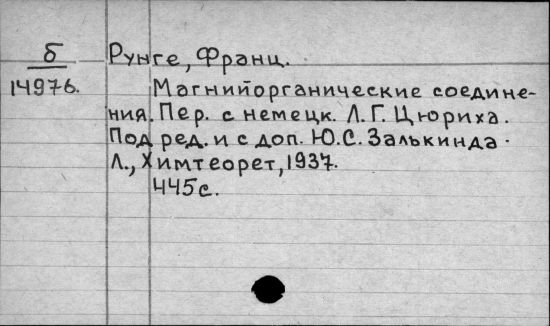 б
14976.
Рунге, Франц.
Магнийорганические соедине-
ния. Пер. с немецк. Л.Г. Цюриха.
Под ред. и с доп. Ю.С. Залькинда.
Л., Химтеорет, 1937.
445с.